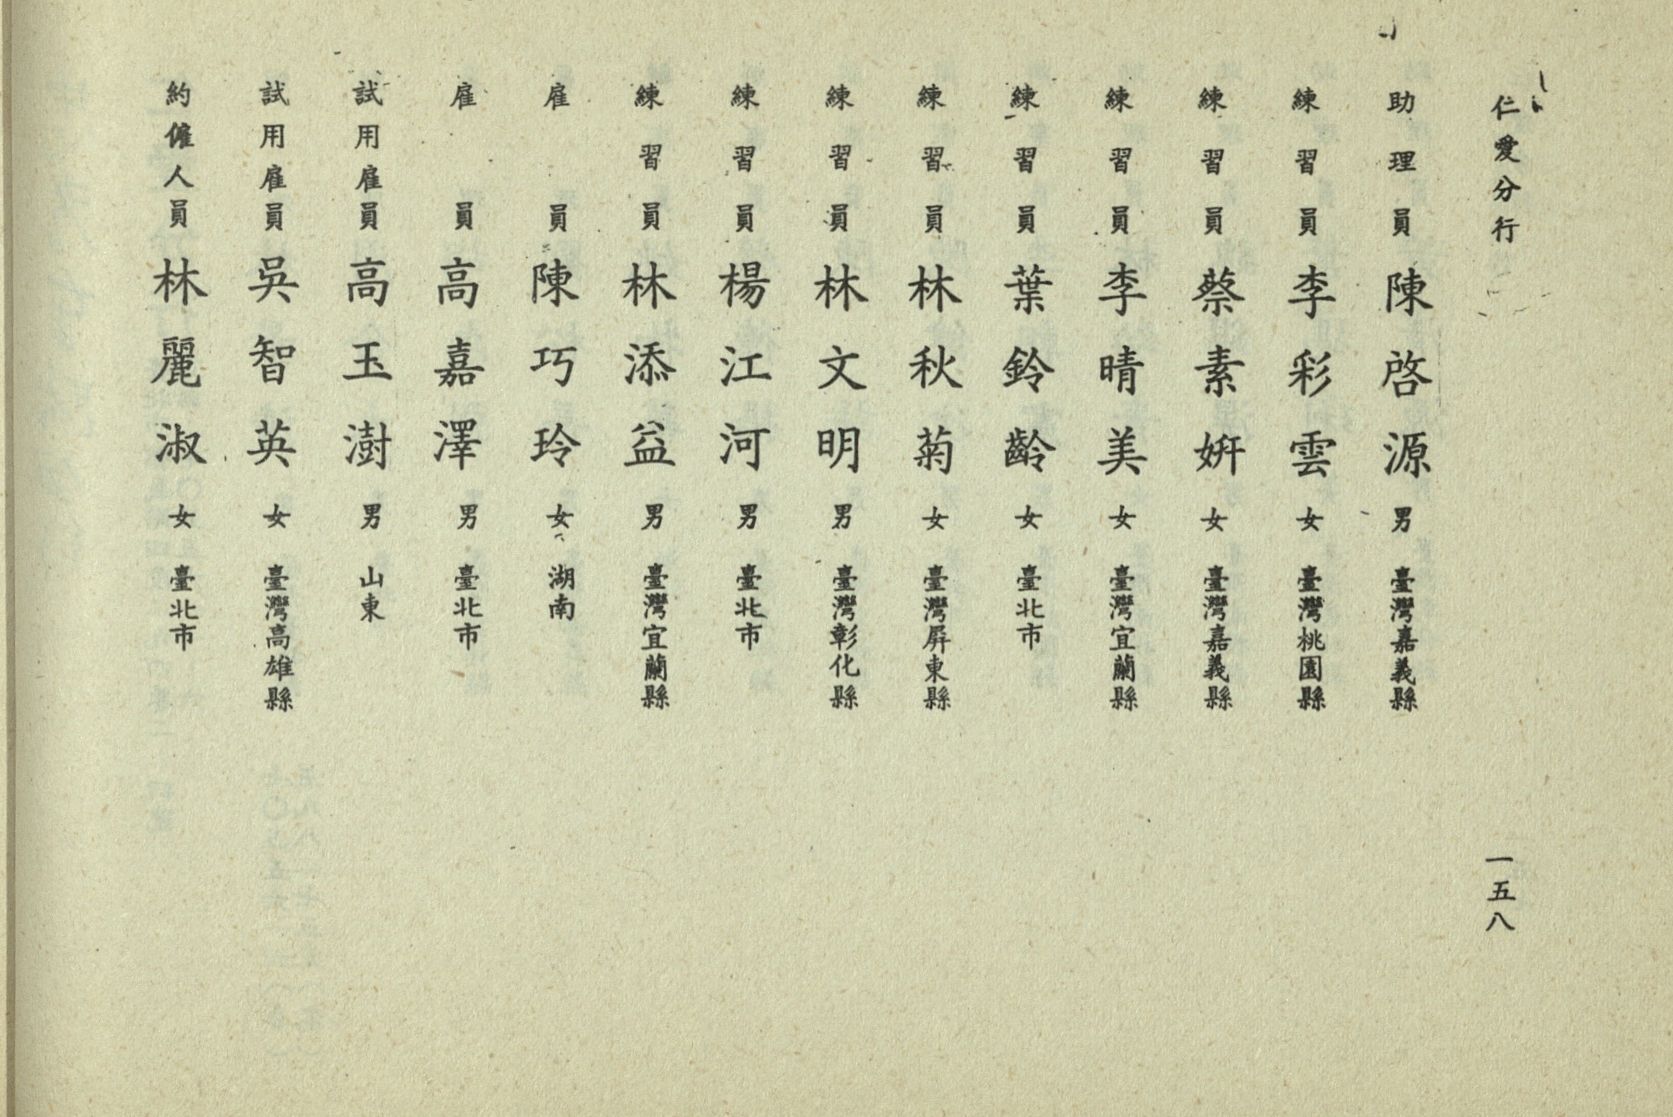 仁愛分行
一五八
助理員 陳啓源 男 臺灣嘉義縣
練習員 李彩雲 女 臺灣桃園縣
練習員 蔡素姸 女 臺灣嘉義縣
練習員 李晴美 女 臺灣宜蘭縣
練習員 葉鈴齡 女 臺北市
練習員 林秋菊 女 臺灣屏東縣
練習員 林文明 男 臺灣彰化縣
練習員 楊江河 男 臺北市
練習員 林添益 男 臺灣宜蘭縣
雇員 陳巧玲 女 湖南
雇員 高嘉澤 男 臺北市
試用雇員 高玉澍 男 山東
試用雇員 吳智英 女 臺灣高雄縣
約僱人員 林麗淑 女 臺北市